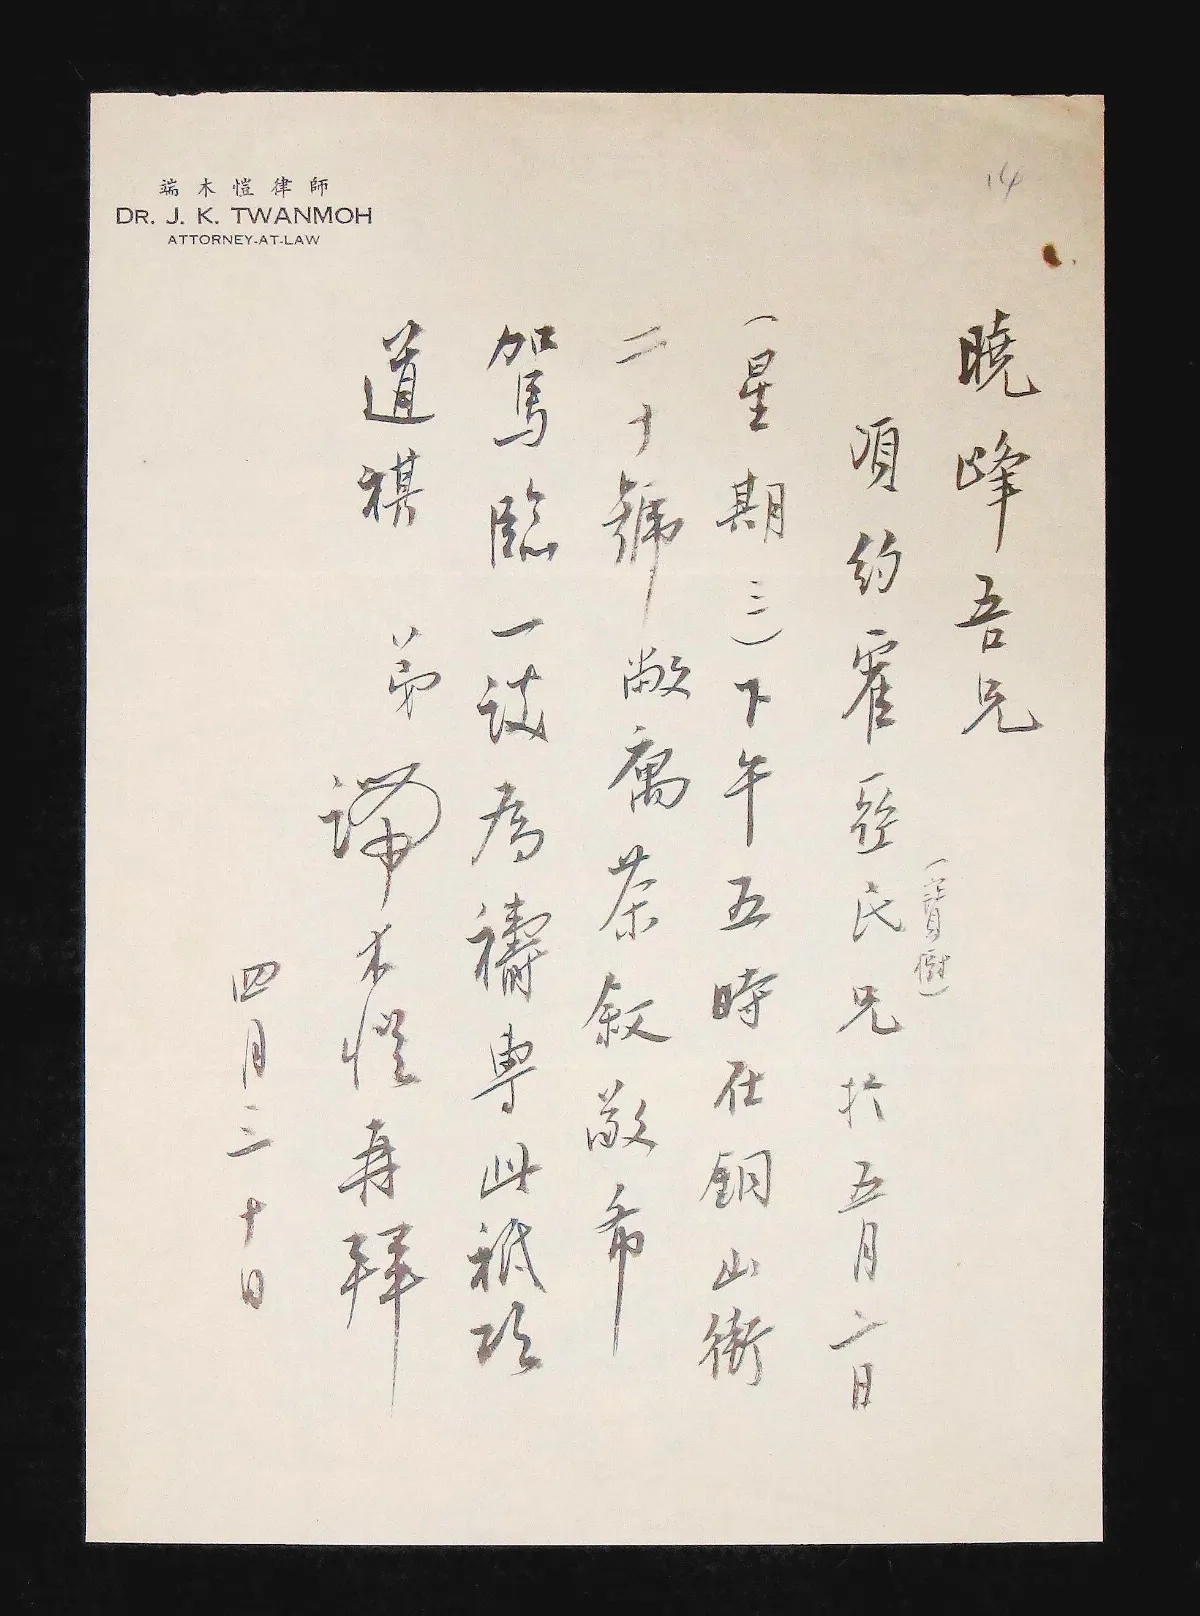 端木愷律師
DR. J. K. TWANMOH
ATTORNEY-AT-LAW
14
曉峰吾兄
頃約霍亞民兄(寶樹)於五月二日
(星期三)下午五時在銅山街
二十號敝寓茶敘敬希
駕臨一談為禱專此祇頌
道祺 弟端木愷再拜
四月三十日